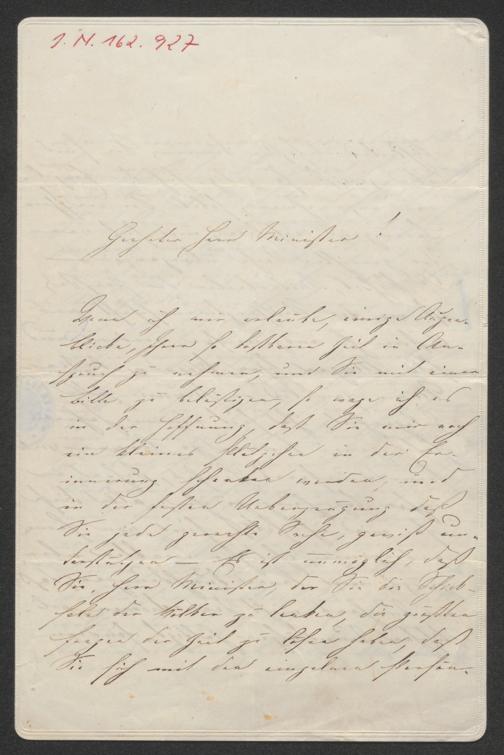 I. N. 162.927
Geehrter Herr Minister!
Wenn ich mir erlaube, einige Augen-
blicke, Ihrer so kostbaren Zeit in An-
spruch zu nehmen, und Sie mit einer
Bitte zu belästigen, so wage ich es
in der Hoffnung, daß Sie mir noch
ein kleines Plätzchen in der Er-
innerung schenken werden, und
in der festen Ueberzeugung daß
Sie jede gerechte Sache, gewiß un-
terstützen — Es ist unmöglich, daß
Sie, Herr Minister, der Sie die Schick-
sale der Völker zu leiten, die größten
Fragen der Zeit zu lösen haben, daß
Sie sich mit den einzelnen Persön-